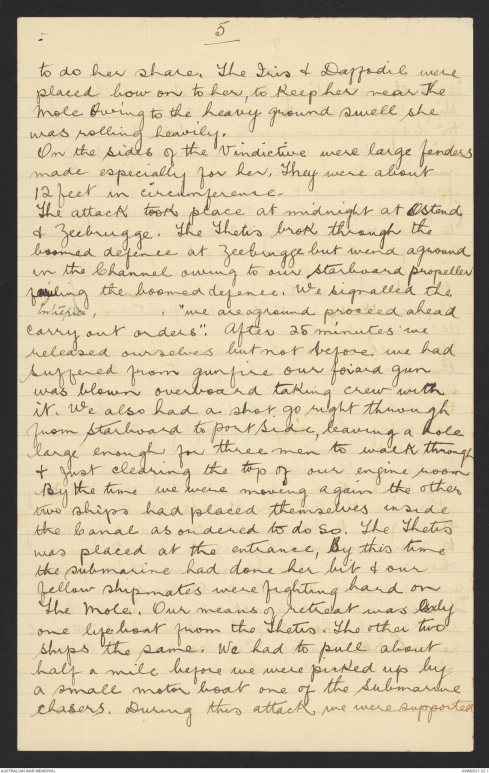 5
to do her share. The Iris & Daffodil were
placed bow on to her, to keep her near The
Mole Owing to the heavy ground swell she
was rolling heavily.
On the sides of the Vindictive were large fenders
made especially for her. They were about
12 feet in circumference -
The attack took place at midnight at Ostend
& Zeebrugge. The Thetis brok through the
boomed defence at Zeebrugge but wend aground
in the Channel owing to our starboard propeller
fouling the boomed defence. We signalled the
Intrepid, "we are aground proceed ahead
carry out orders". After 25 minutes we
released ourselves but not before we had
suffered from gunfire our foiard gun
was blown overboard taking crew with
it. We also had a shot go right through
from starboard to port side, leaving a hole
large enough for three men to walk through
& just clearing the top of our engine room
By the time we were moving again the other
two ships had placed themselves inside
the Canal as ordered to do so. The Thetis
was placed at the entrance, By this time
the submarine had done her bit & our
fellow shipmates were fighting hard on
The Mole. Our means of retreat was Only
one lifeboat from the Thetis. The other two
ships the same. We had to pull about
half a mile before we were picked up by
a small motor boat one of the submarine
chasers. During this attack we were supported
AUSTRALIAN WAR MEMORIAL